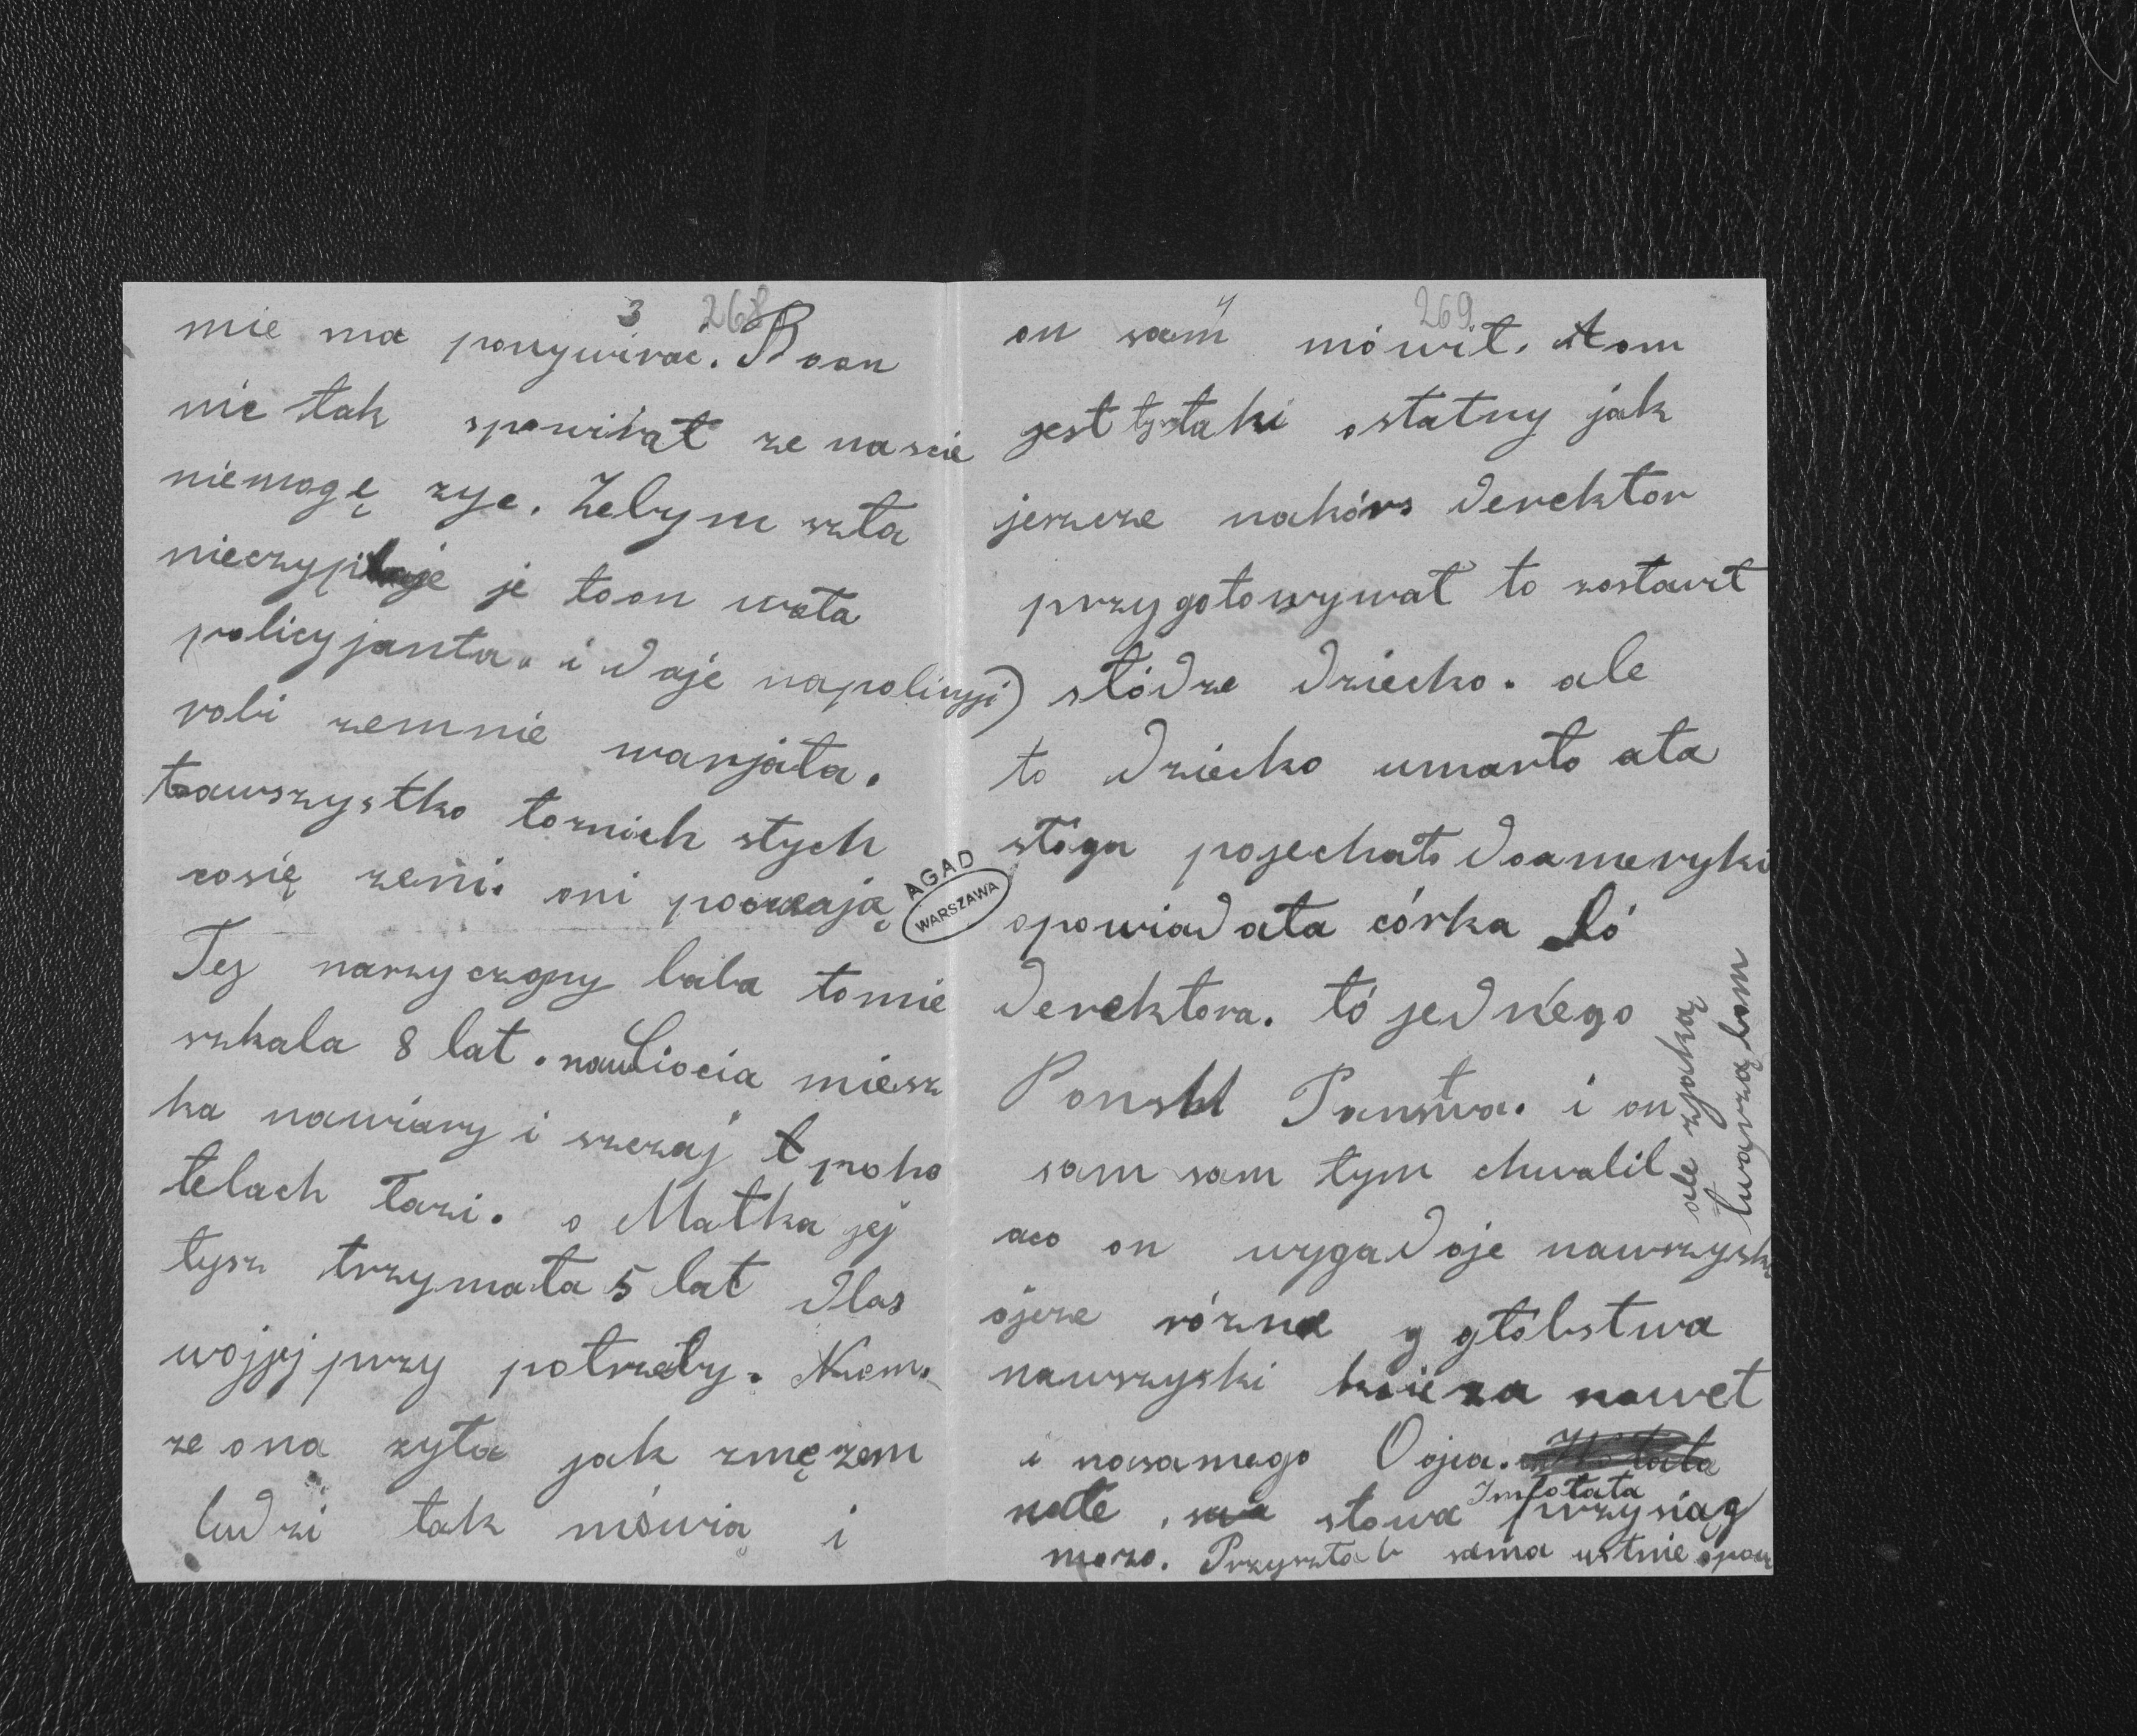 3 268
mie ma ponywirać. Boon
nie tak sponiwrat ze nascie
niemogę zyc. Zebym szła
nieczypi je toon woła
policyjanta. i daje napolicyji)
robi zemnie warjata.
towszystko toznich stych
cosię zeni. oni poczcają
Tej narzyczony baba tomie
szkala 8 lat. nau Ciocia miesz
ka nawiary i szczaj t poho
telach łazi. o Matka jej
tysz trzymała 5 lat dlas
wojjej przy potrzeby. Niem.
ze ona zyła jak zmęzem
ludzi tak mówią i
4 269
on sam mówił. Atom
jest tystaki ostatny jak
jeszcze nakórs derektor
przygotowywał to zostawł
stódze dziecko. ale
to dziecko umarło ata
stóga pojechała doameryki
opowiadała córka tó
derektora. tó jednego
Ponskl Panstwa. i on
sam sam tym chwalil
aco on wygadoje nawrzyski
ojcze rózne g głóbstwa
nawrzyski ksieza nawet
i nosamego Oojca.
nate, stowa Imłotata przysiąg
mozo. Przyszła b sama ustnie opow
ale zjaką
twarzą bom
AGAD
WARSZAWA